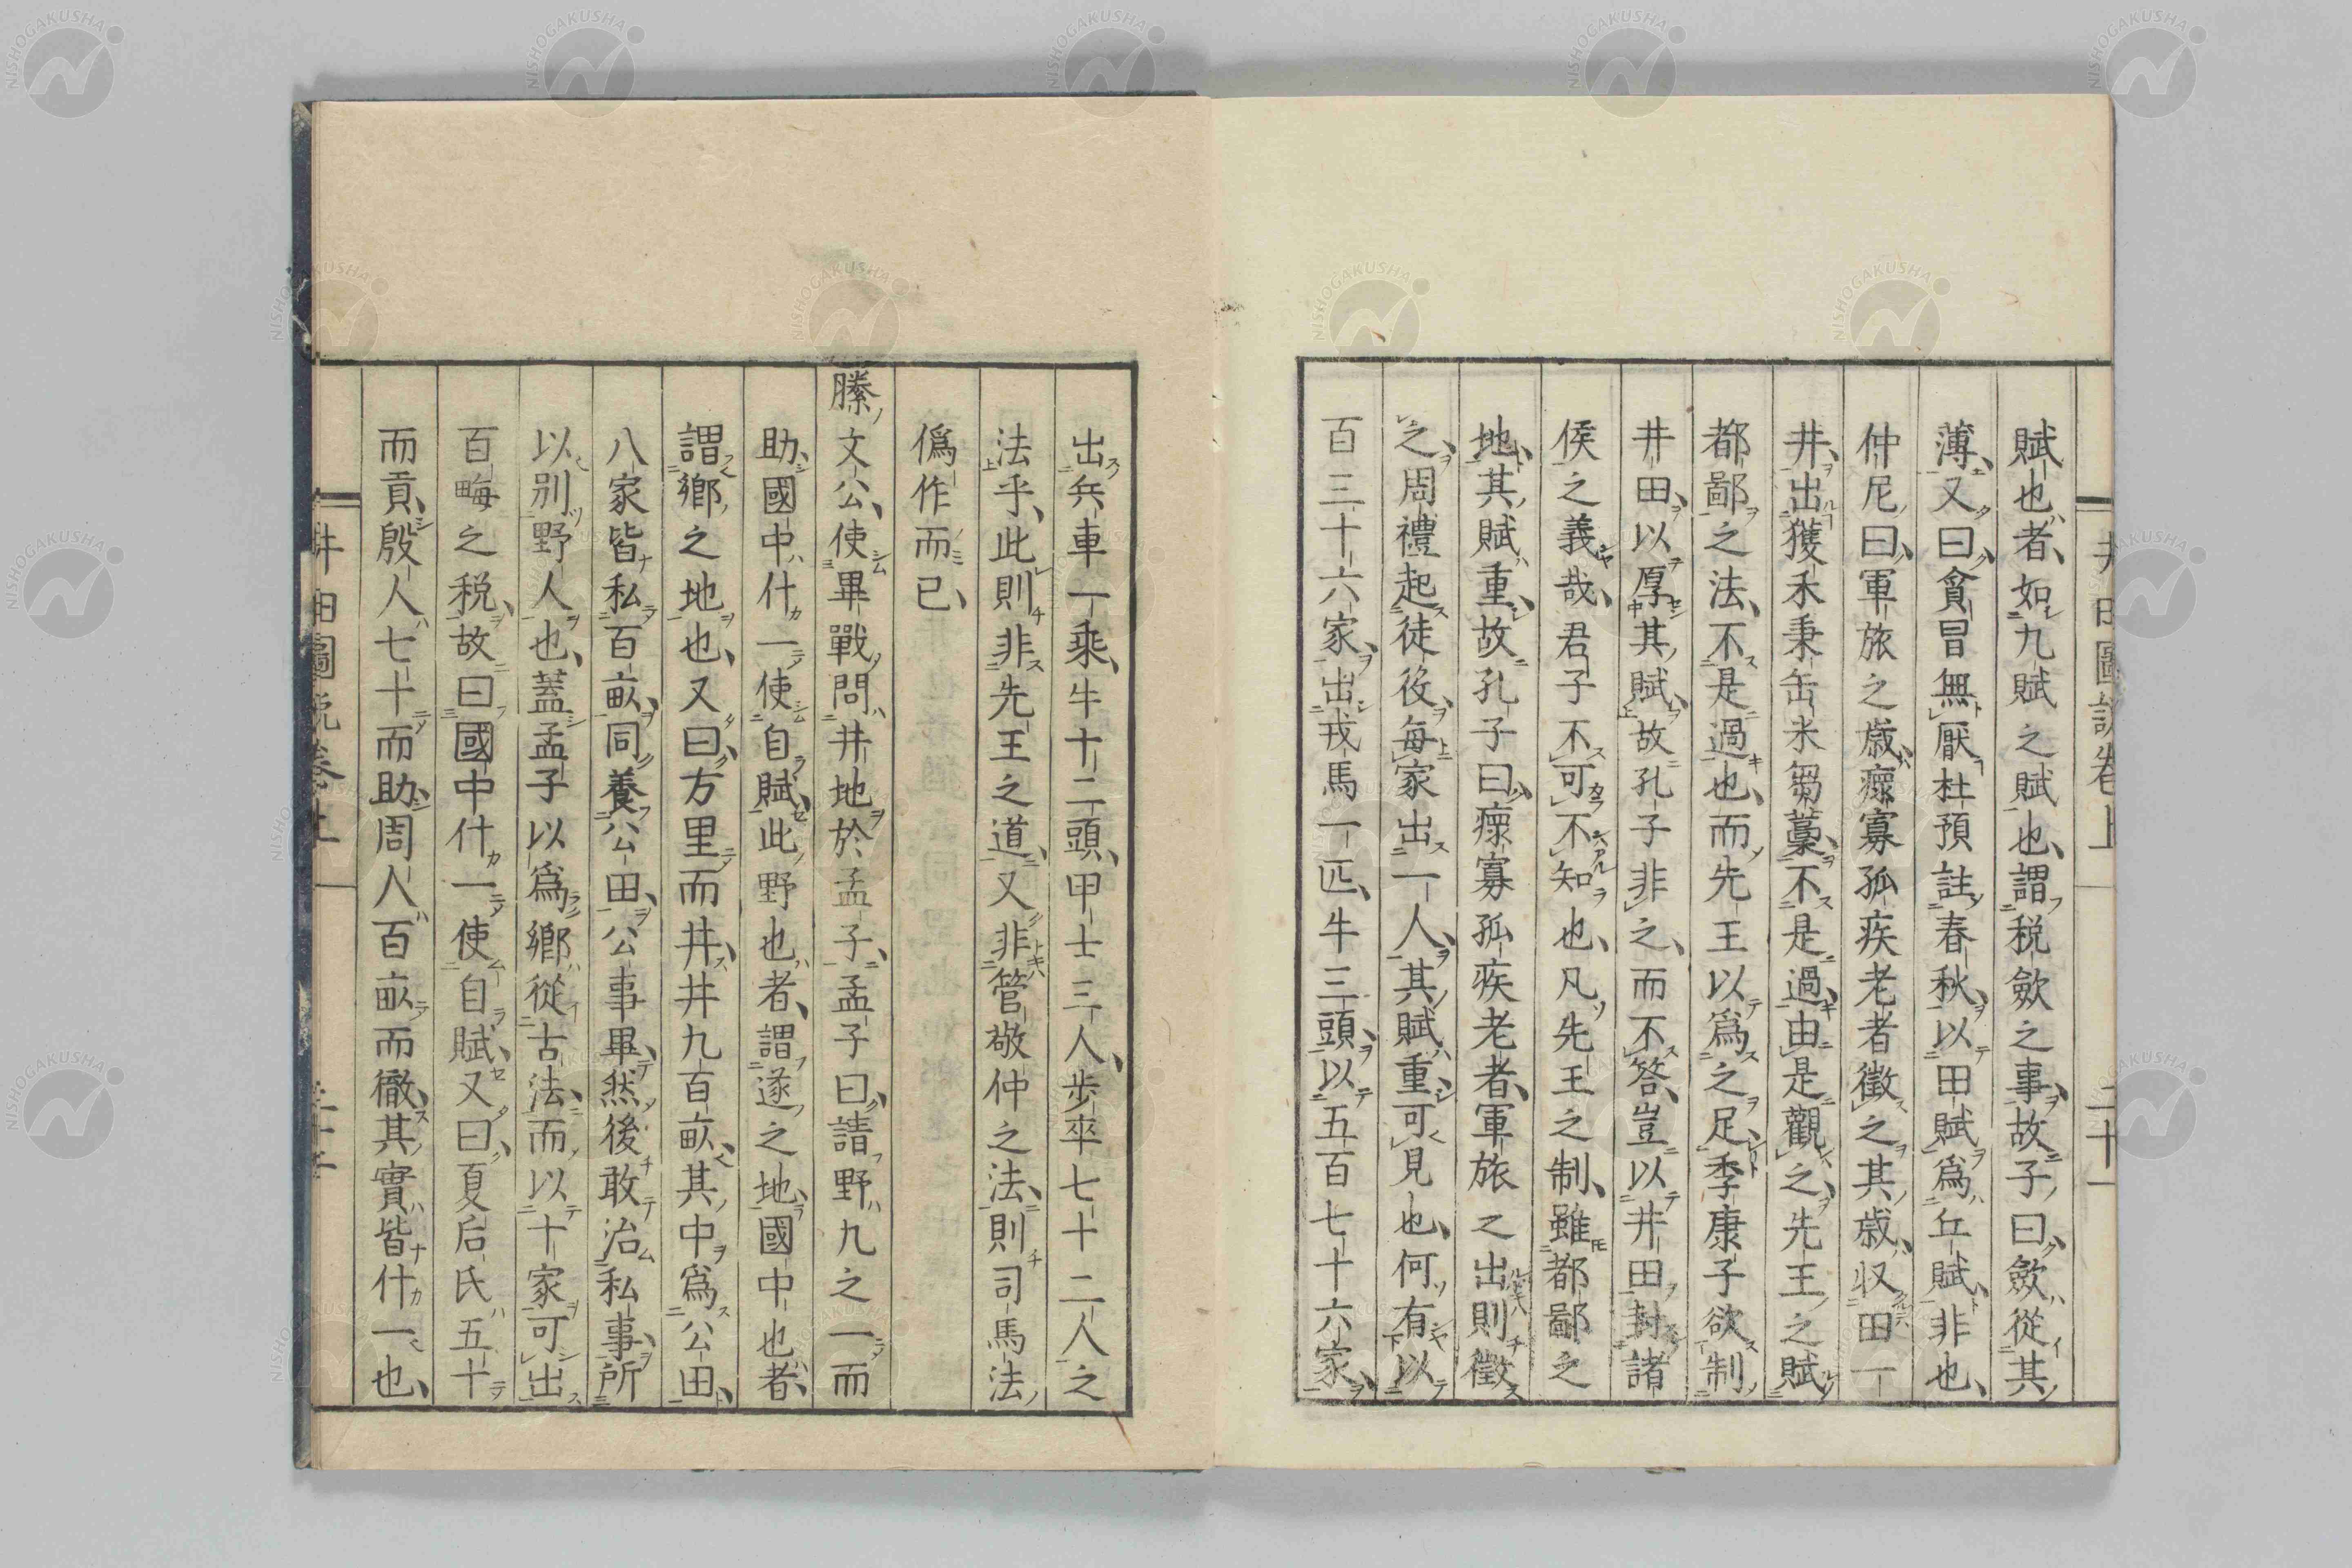 賦也者、如九賦之賦也、謂税斂之事、故子曰、斂從其
薄、又曰、貪冒無厭杜預註春秋、以田賦爲丘賦、非也、
仲尼曰、軍旅之歳、瘝寡孤疾老者徵之其歳、収田一
井、出獲禾秉缶米芻藁、不是過、由是觀之、先王之賦
都鄙之法、不是過也、而先王以爲之足、季康子欲制
井田、以厚其賦、故孔子非之、而不答、豈以井田封諸
侯之義哉、君子不可不知也、凡先王之制、雖都鄙之
地、其賦重、故孔子曰、瘝寡孤疾老者、軍旅之出則徵
之、周禮起徒役、毎家出一人、其賦重、可見也、何有以
百三十六家、出戎馬一匹、牛三頭、以五百七十六家、
出兵車一乘、牛十二頭、甲士三人、歩卒七十二人之
法乎、此則非先王之道、又非管敬仲之法、則司馬法
僞作而已、
滕文公、使畢戰問井地於孟子、孟子曰、請野九之一而
助、國中什一使自賦、此野也者、謂遂之地、國中也者、
謂鄉之地也、又曰、方里而井、井九百畝、其中爲公田、
八家皆私百畝、同養公田、公事畢、然後敢治私事、所
以別野人也、蓋孟子以爲鄉從古法、而以十家可出
百畮之税、故曰國中什一使自賦、又曰、夏后氏五十
而貢、殷人七十而助、周人百畝而徹、其實皆什一也、
井田圖説卷上
二十一
NISHOGAKUSHA